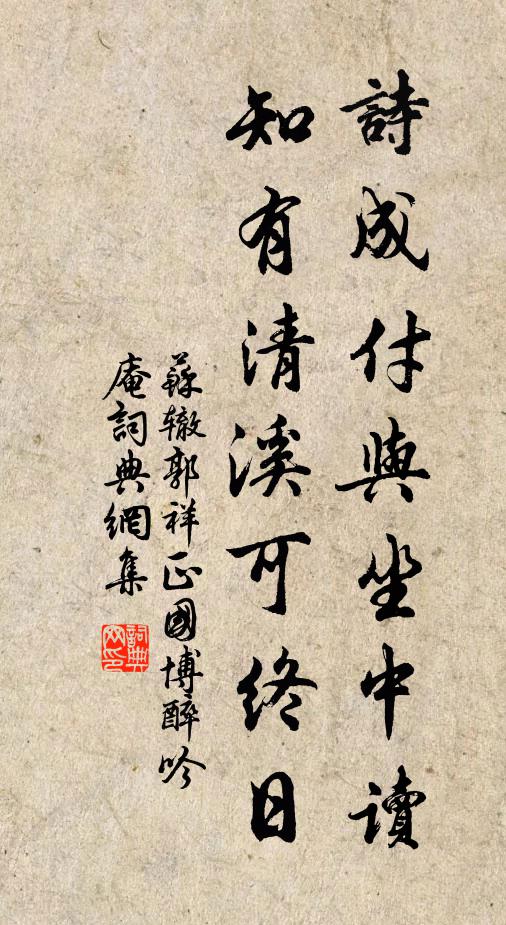 詩成付與坐中讀
知有清溪可終日
蘇辙郭祥正國博醉吟
庵詞典網集
詞典网印